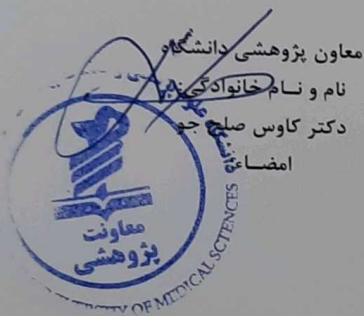 معاون پژوهشی دانشگاه
نام و نام خانوادگی:
دکتر کاوس صلح جو
امضاء
دانشگاه علوم
معاونت
پژوهشی
OF MEDICAL SCIENCES